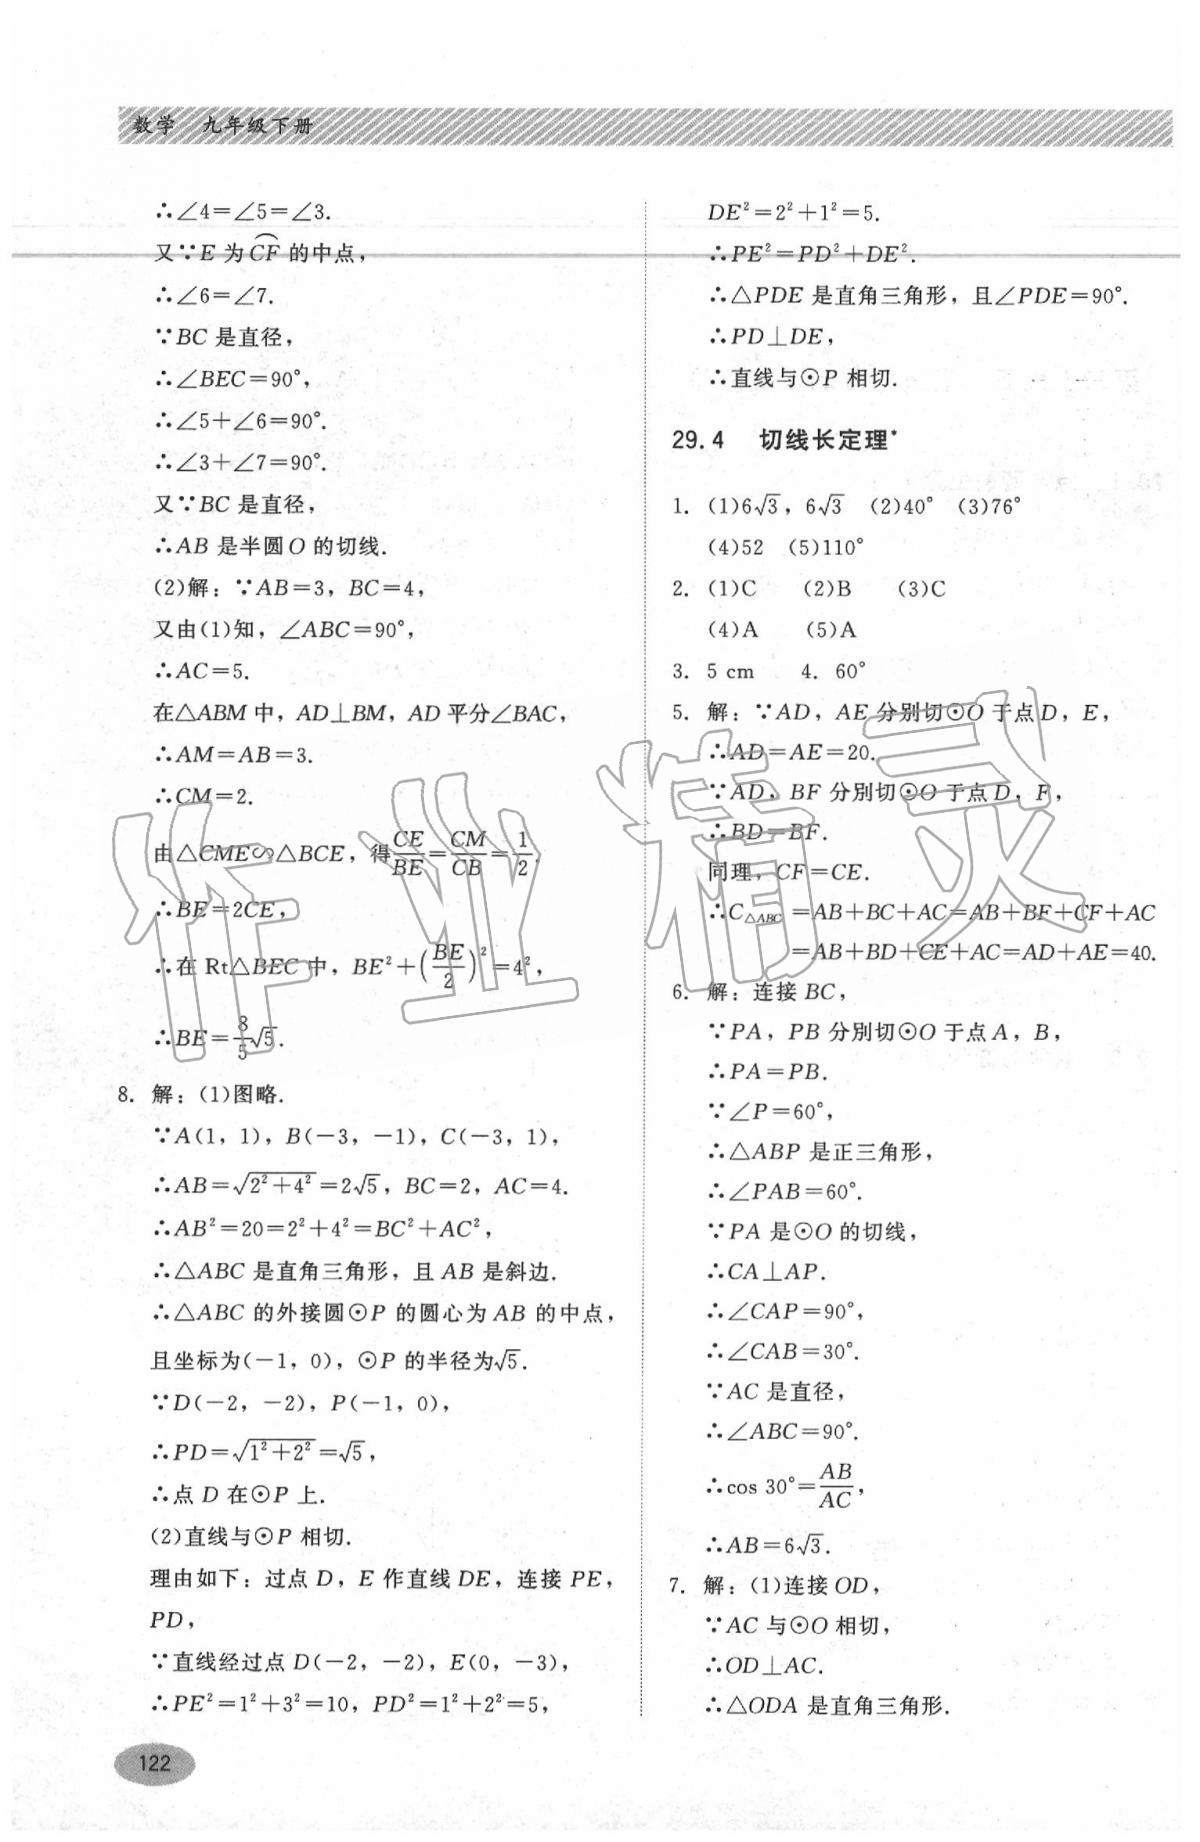 数学 九年级下册
∴∠4=∠5=∠3.
又∵E 为 $\overset{\frown}{CF}$ 的中点，
∴∠6=∠7.
∵BC 是直径，
∴∠BEC=90°，
∴∠5+∠6=90°.
∴∠3+∠7=90°.
又∵BC 是直径，
∴AB 是半圆 O 的切线.
(2)解：∵AB=3，BC=4，
又由(1)知，∠ABC=90°，
∴AC=5.
在△ABM 中，AD⊥BM，AD 平分∠BAC，
∴AM=AB=3.
∴CM=2.
由△CME∽△BCE，得CE/BE=CM/CB=1/2.
∴BE=2CE，
∴在 Rt△BEC 中，BE²+(BE/2)²=4²，
∴BE=8/5√5.
8. 解：(1)图略.
∵A(1，1)，B(−3，−1)，C(−3，1)，
∴AB=√(2²+4²)=2√5，BC=2，AC=4.
∴AB²=20=2²+4²=BC²+AC²，
∴△ABC 是直角三角形，且 AB 是斜边.
∴△ABC 的外接圆⊙P 的圆心为 AB 的中点，
且坐标为(−1，0)，⊙P 的半径为√5.
∵D(−2，−2)，P(−1，0)，
∴PD=√(1²+2²)=√5，
∴点 D 在⊙P 上.
(2)直线与⊙P 相切.
理由如下：过点 D，E 作直线 DE，连接 PE，
PD，
∵直线经过点 D(−2，−2)，E(0，−3)，
∴PE²=1²+3²=10，PD²=1²+2²=5，
122
DE²=2²+1²=5.
∴PE²=PD²+DE².
∴△PDE 是直角三角形，且∠PDE=90°.
∴PD⊥DE，
∴直线与⊙P 相切.
29.4 切线长定理*
1. (1)6√3，6√3 (2)40° (3)76°
(4)52 (5)110°
2. (1)C (2)B (3)C
(4)A (5)A
3. 5 cm 4. 60°
5. 解：∵AD，AE 分别切⊙O 于点 D，E，
∴AD=AE=20.
∵AD，BF 分别切⊙O 于点 D，F，
∴BD=BF.
同理，CF=CE.
∴C△ABC=AB+BC+AC=AB+BF+CF+AC
=AB+BD+CE+AC=AD+AE=40.
6. 解：连接 BC，
∵PA，PB 分别切⊙O 于点 A，B，
∴PA=PB.
∵∠P=60°，
∴△ABP 是正三角形，
∴∠PAB=60°.
∵PA 是⊙O 的切线，
∴CA⊥AP.
∴∠CAP=90°，
∴∠CAB=30°.
∵AC 是直径，
∴∠ABC=90°.
∴cos 30°=AB/AC，
∴AB=6√3.
7. 解：(1)连接 OD，
∵AC 与⊙O 相切，
∴OD⊥AC.
∴△ODA 是直角三角形.
作业精灵